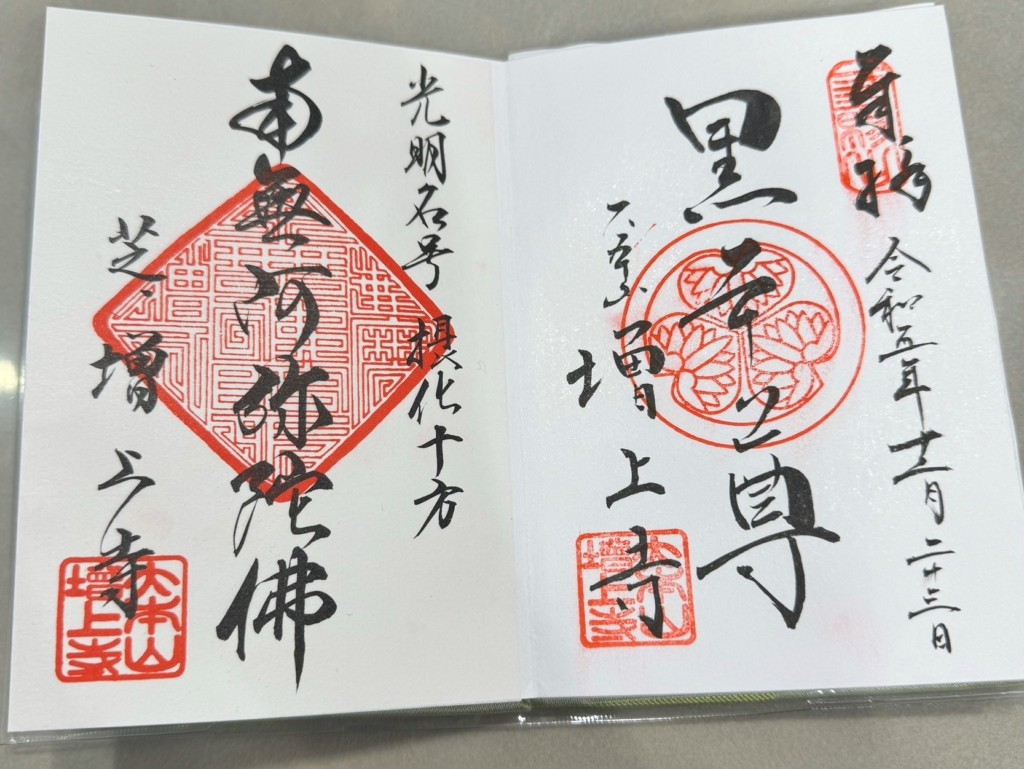 奉拝
令和五年十二月二十三日
黒本尊
大本山
増上寺
大本山
増上寺
光明名号
摂化十方
南無阿弥陀佛
芝
増上寺
大本山
増上寺